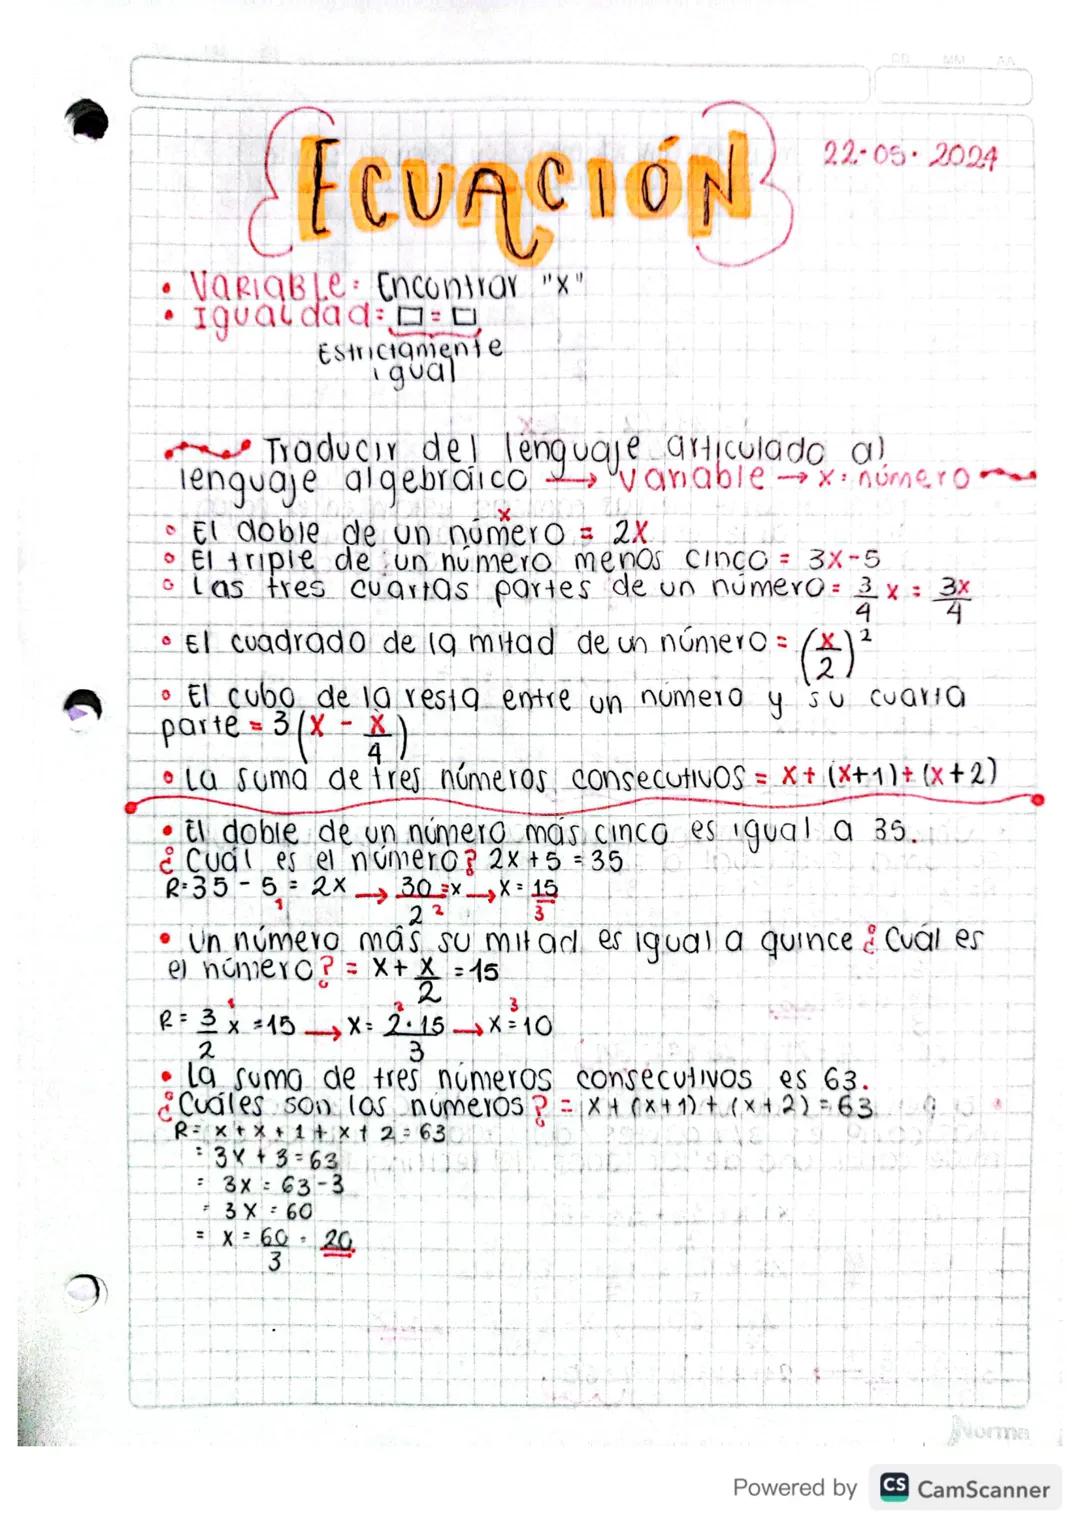 DD MM AA
ECUACIÓN
22·05·2024
• VARIABLE: Encontrar "X"
• Igualdad: □ = □
Estrictamente
igual
Traducir del lenguaje articulado al
lenguaje algebráico → variable → x: número
x
• El doble de un número = 2X
• El triple de un número menos cinco = 3x-5
• las tres cuartas partes de un número = 3/4 x = 3x/4
• El cuadrado de la mitad de un número = (x/2)²
• El cubo de la resta entre un número y su cuarta
parte = 3(x - x/4)
• La suma de tres números consecutivos = x + (x+1) + (x+2)
• El doble de un número más cinco es igual a 35.
¿Cuál es el número? 2x + 5 = 35
R=35 - 5 = 2x → 30/2 = x → x = 15
1 2 3
• Un número más su mitad es igual a quince ¿Cuál es
el número? = x + x/2 = 15
1 2 3
R = 3/2 x = 15 → x = 2·15/3 → x = 10
• La suma de tres números consecutivos es 63.
¿Cuáles son los números? = x + (x+1) + (x+2) = 63
R = x + x + 1 + x + 2 = 63
= 3x + 3 = 63
= 3x = 63-3
= 3x = 60
= x = 60/3 = 20
Norma
Powered by CS CamScanner